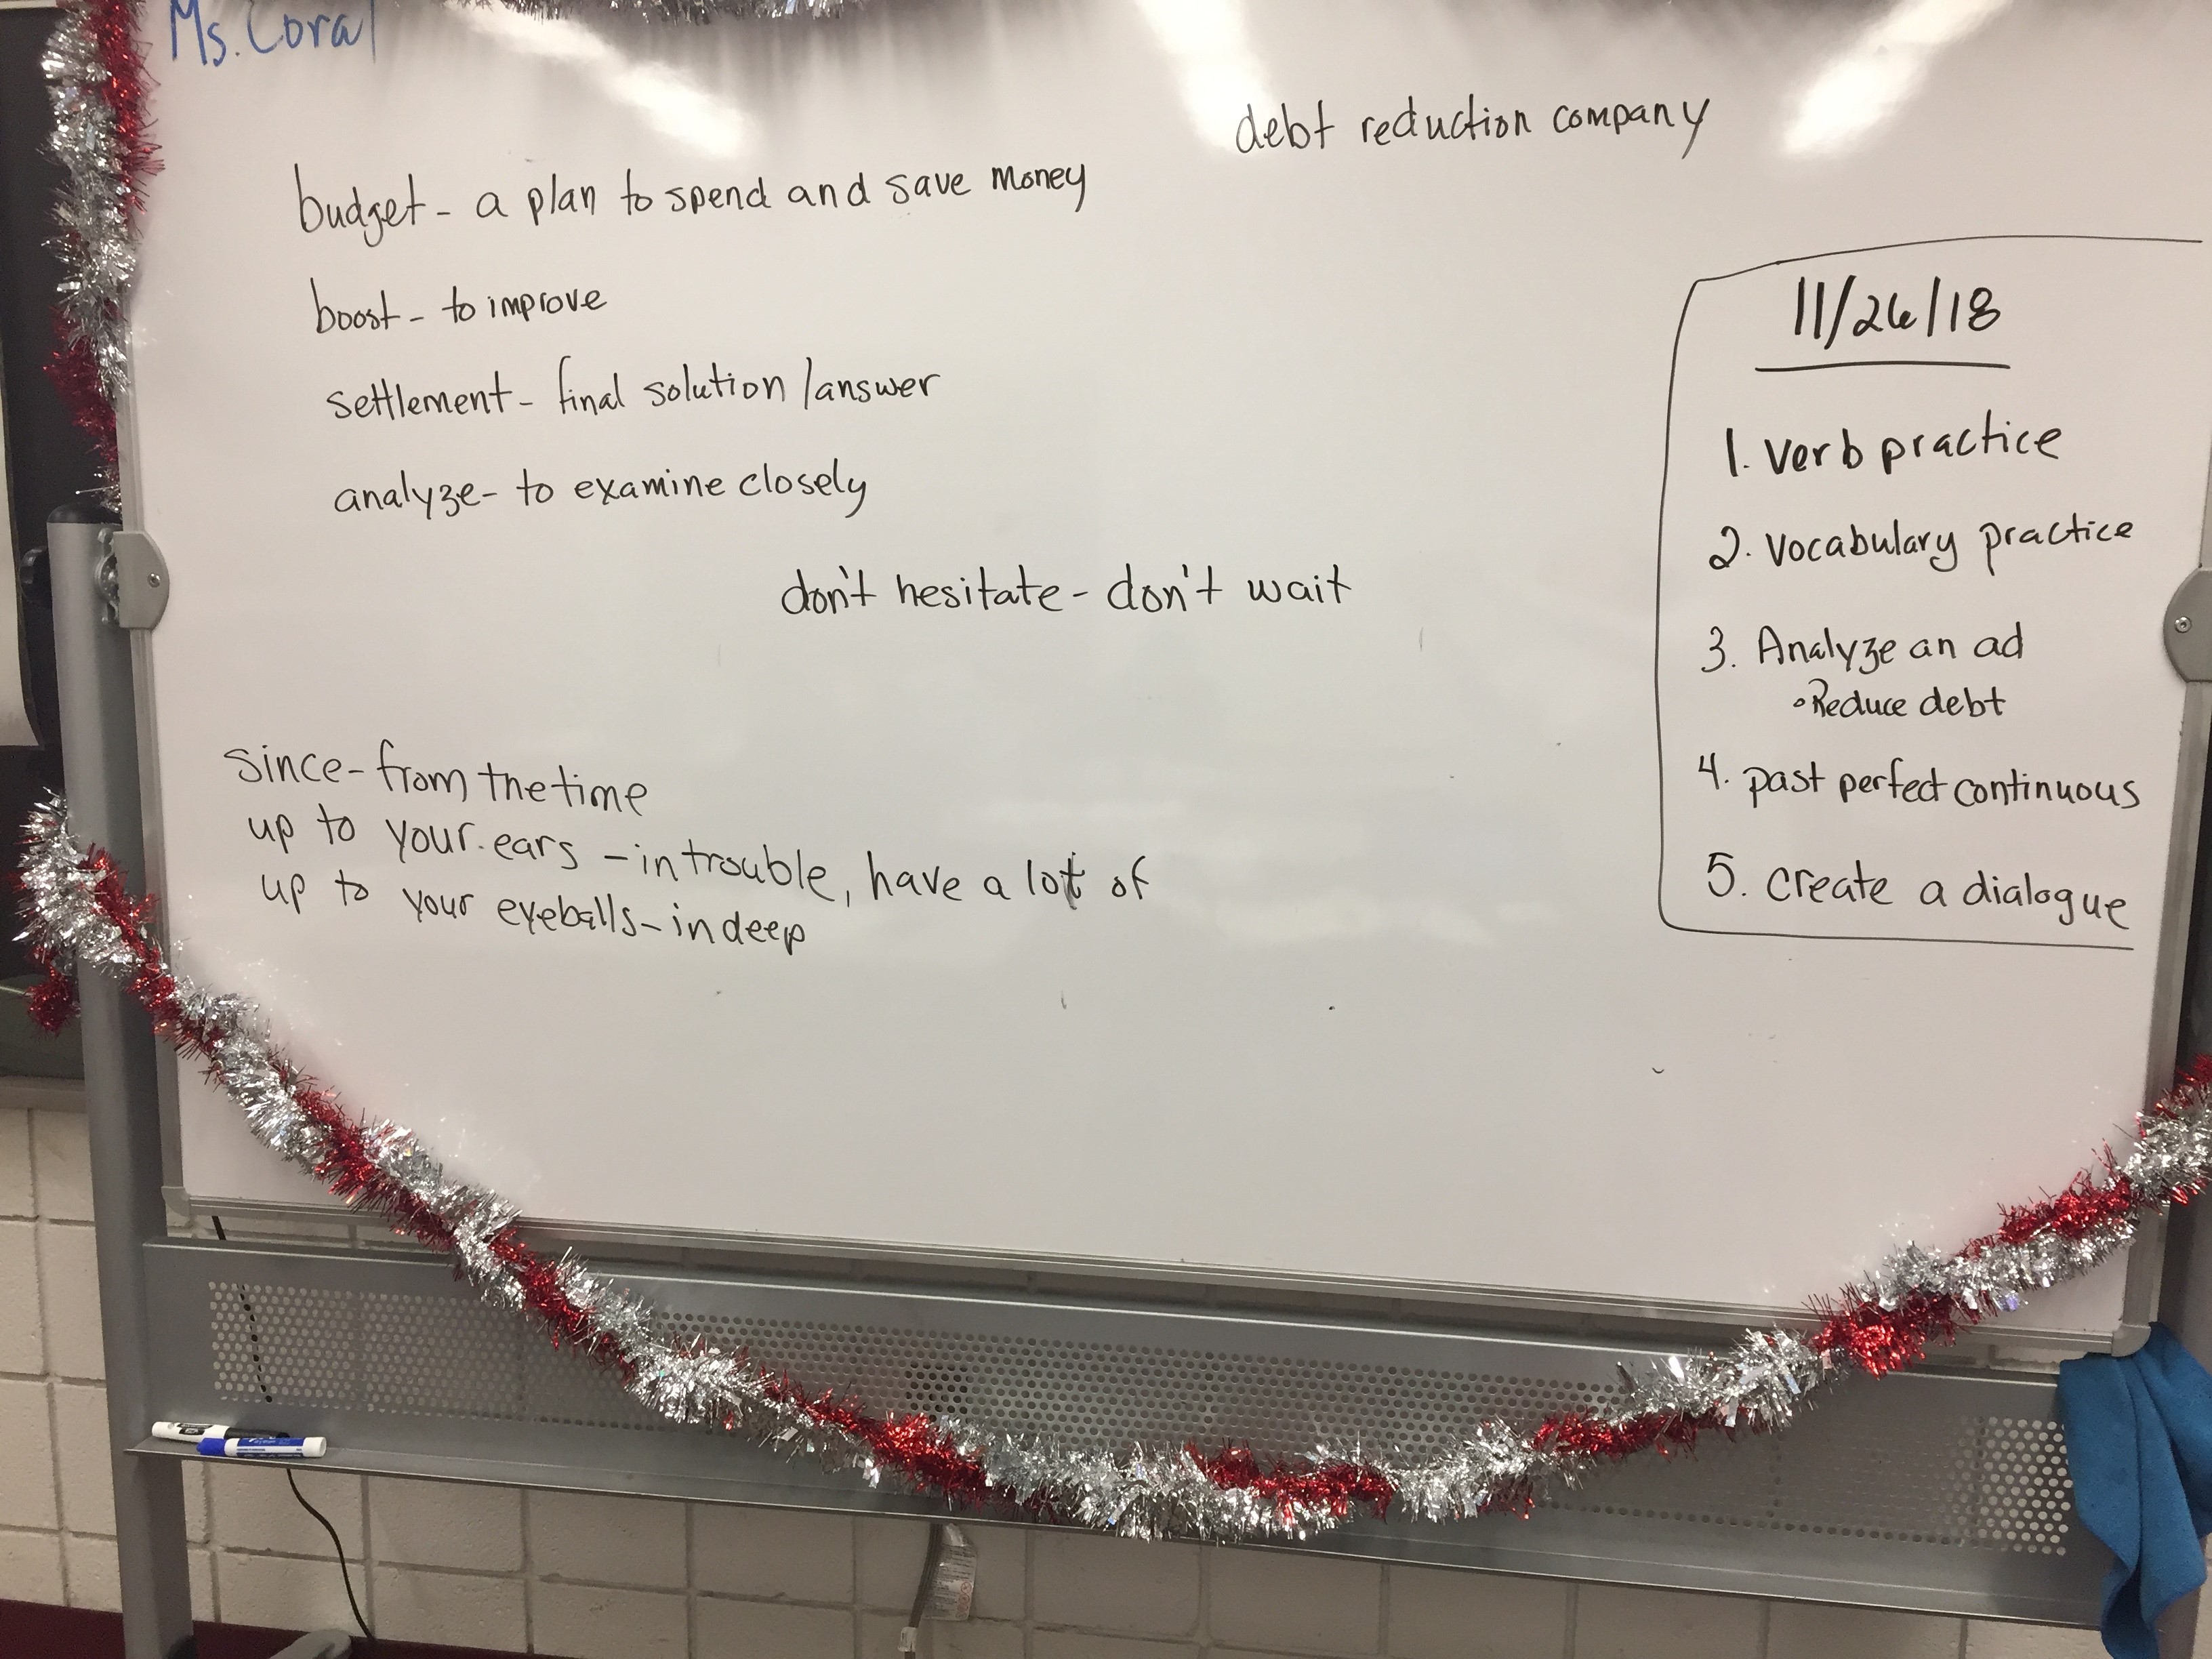 Ms. Coral
debt reduction company
budget - a plan to spend and save money
boost - to improve
settlement - final solution / answer
analyze - to examine closely
don't hesitate - don't wait
since - from the time
up to your ears - in trouble, have a lot of
up to your eyeballs - in deep
11/26/18
1. Verb practice
2. Vocabulary practice
3. Analyze an ad
• Reduce debt
4. past perfect continuous
5. Create a dialogue